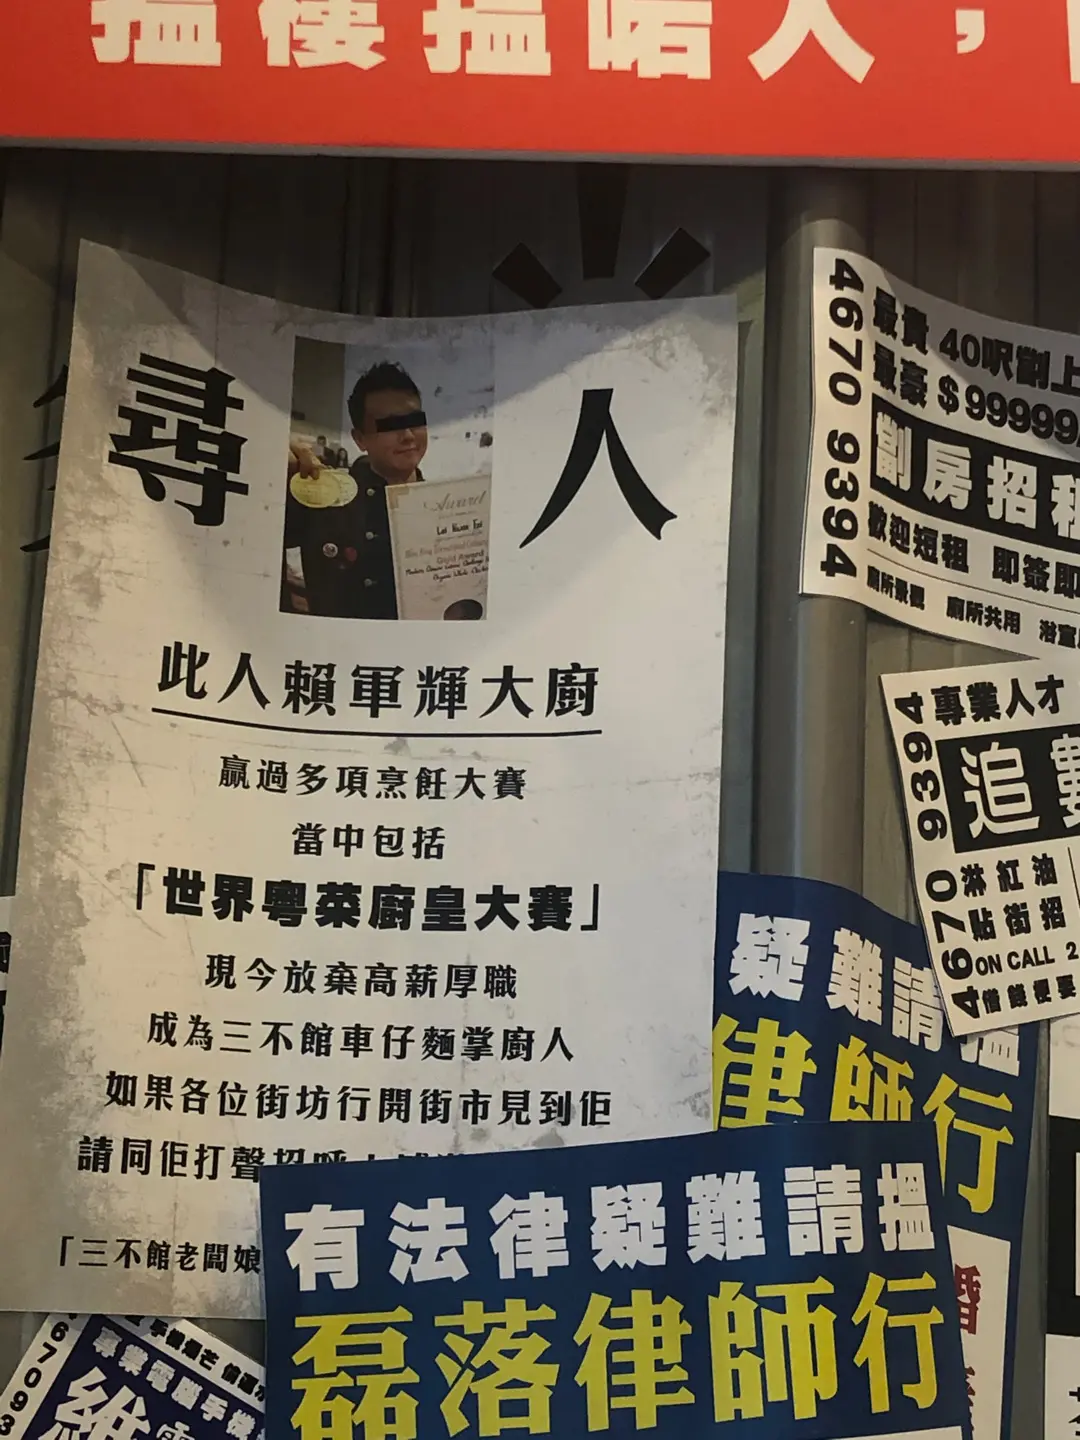 搵樓搵啱人，
尋人
Award
Lai Kwan Fai
此人賴軍輝大廚
贏過多項烹飪大賽
當中包括
「世界粵菜廚皇大賽」
現今放棄高薪厚職
成為三不館車仔麵掌廚人
如果各位街坊行開街市見到佢
請同佢打聲招呼
「三不館老闆娘
4670 9394
最貴 40呎劏上
最豪 $99999
劏房招租
歡迎短租 即簽即
廁所景觀 廁所共用 浴室
4670 9394
專業人才
追數
淋紅油
貼街招
ON CALL 2
借錢梗要
疑難請搵
律師行
有法律疑難請搵
磊落律師行
婚
67093
專業電腦手機
維